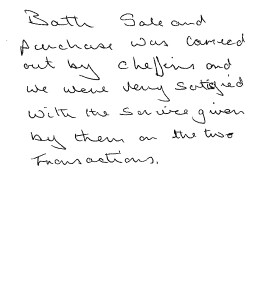 Both Sale and
purchase was carried
out by Cheffins and
we were very satisfied
with the service given
by them on the two
transactions.